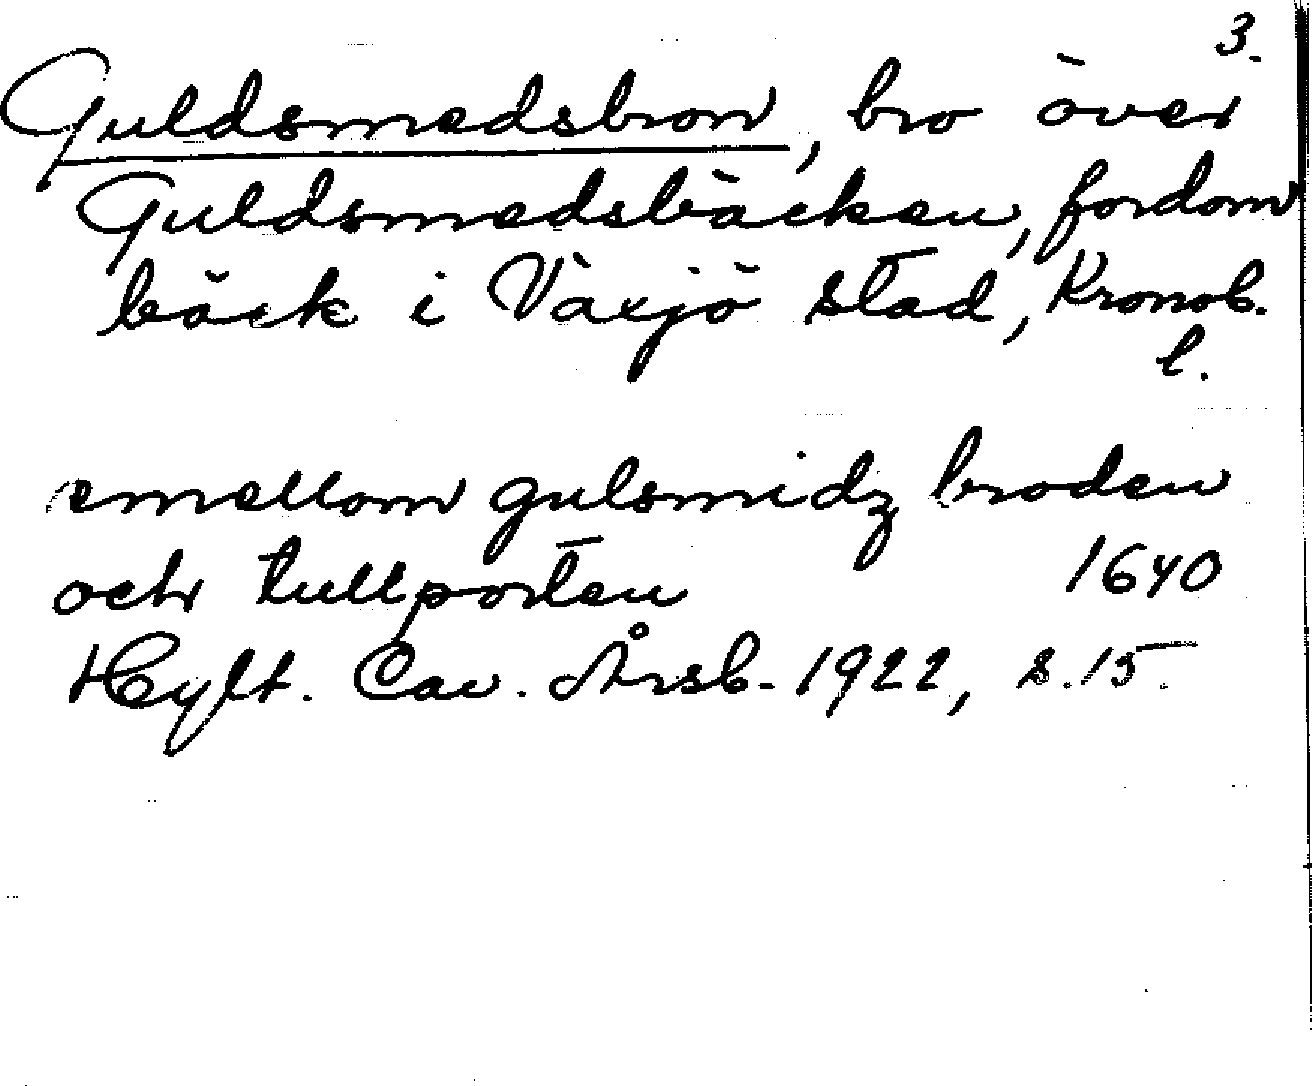 3.
Guldsmedsbron, bro över
Guldsmedsbäcken, fordom
bäck i Växjö stad, Kronob.
l.
emellom gulsmidz broden
och tullporten 1640
Hylt. Cav. Årsb. 1922, s. 15.